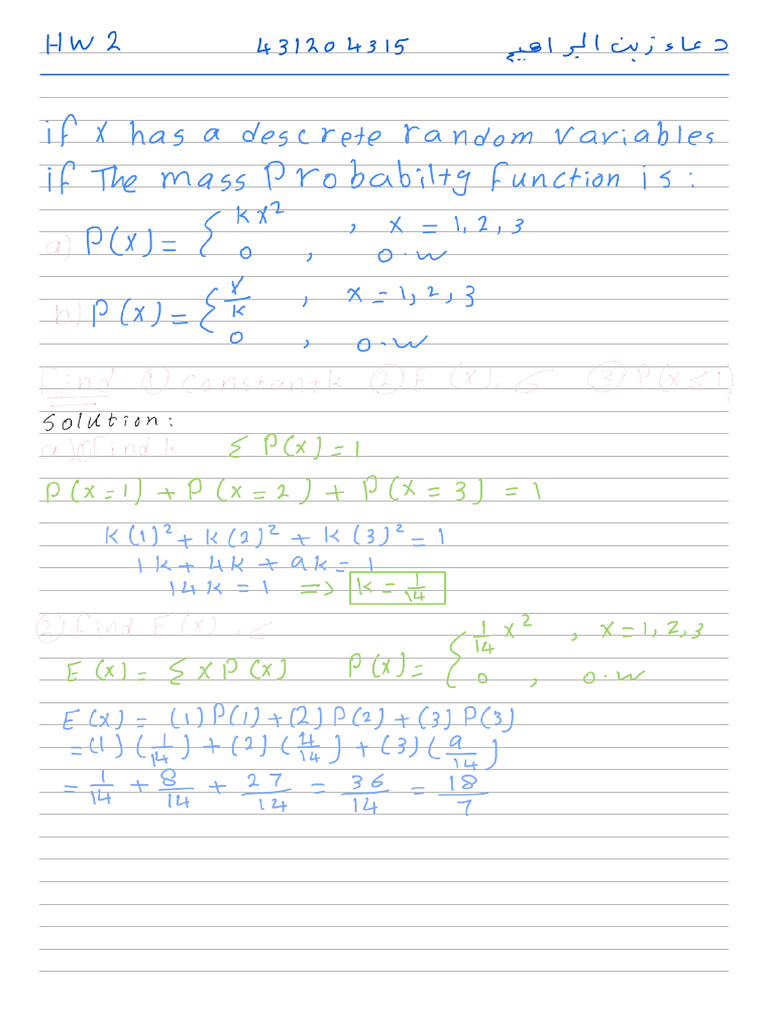 HW 2 431204315 دعاء زين البراهيم
if x has a descrete random variables
if The mass Probabiltg function is :
a) P(x) = { kx² , x = 1, 2, 3
0 , o.w
b) P(x) = { x/k , x = 1, 2, 3
0 , o.w
Find ① constant k ② E(x), σ ③ P(x ≤ 1)
Solution:
a) ① find k Σ P(x) = 1
P(x=1) + P(x=2) + P(x=3) = 1
k(1)² + k(2)² + k(3)² = 1
1k + 4k + 9k = 1
14k = 1 => k = 1/14
② Find E(x), σ
E(x) = Σ x P(x) P(x) = { 1/14 x² , x = 1, 2, 3
0 , o.w
E(x) = (1)P(1) + (2)P(2) + (3)P(3)
= (1)(1/14) + (2)(4/14) + (3)(9/14)
= 1/14 + 8/14 + 27/14 = 36/14 = 18/7